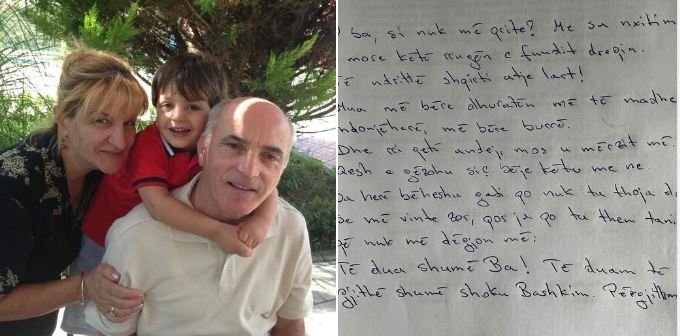 Ba, si nuk më prite? Me sa nxitim
more këtë rrugën e fundit drejtin.
Të ndrittë shpirti atje lart!
Mua më bëre dhuratën më të madhe
ndonjëherë, më bëre burrë.
Dhe rri qetë andej, mos u mërzit më.
Qesh e gëzohu siç bëje këtu me ne.
Sa herë bëhesha gati po nuk ta thoja d
se më vinte zor, por ja po ta them tani
që nuk më dëgjon më:
Të dua shumë Ba! Të duam të
gjithë shumë shoku Bashkim. Përgjithm